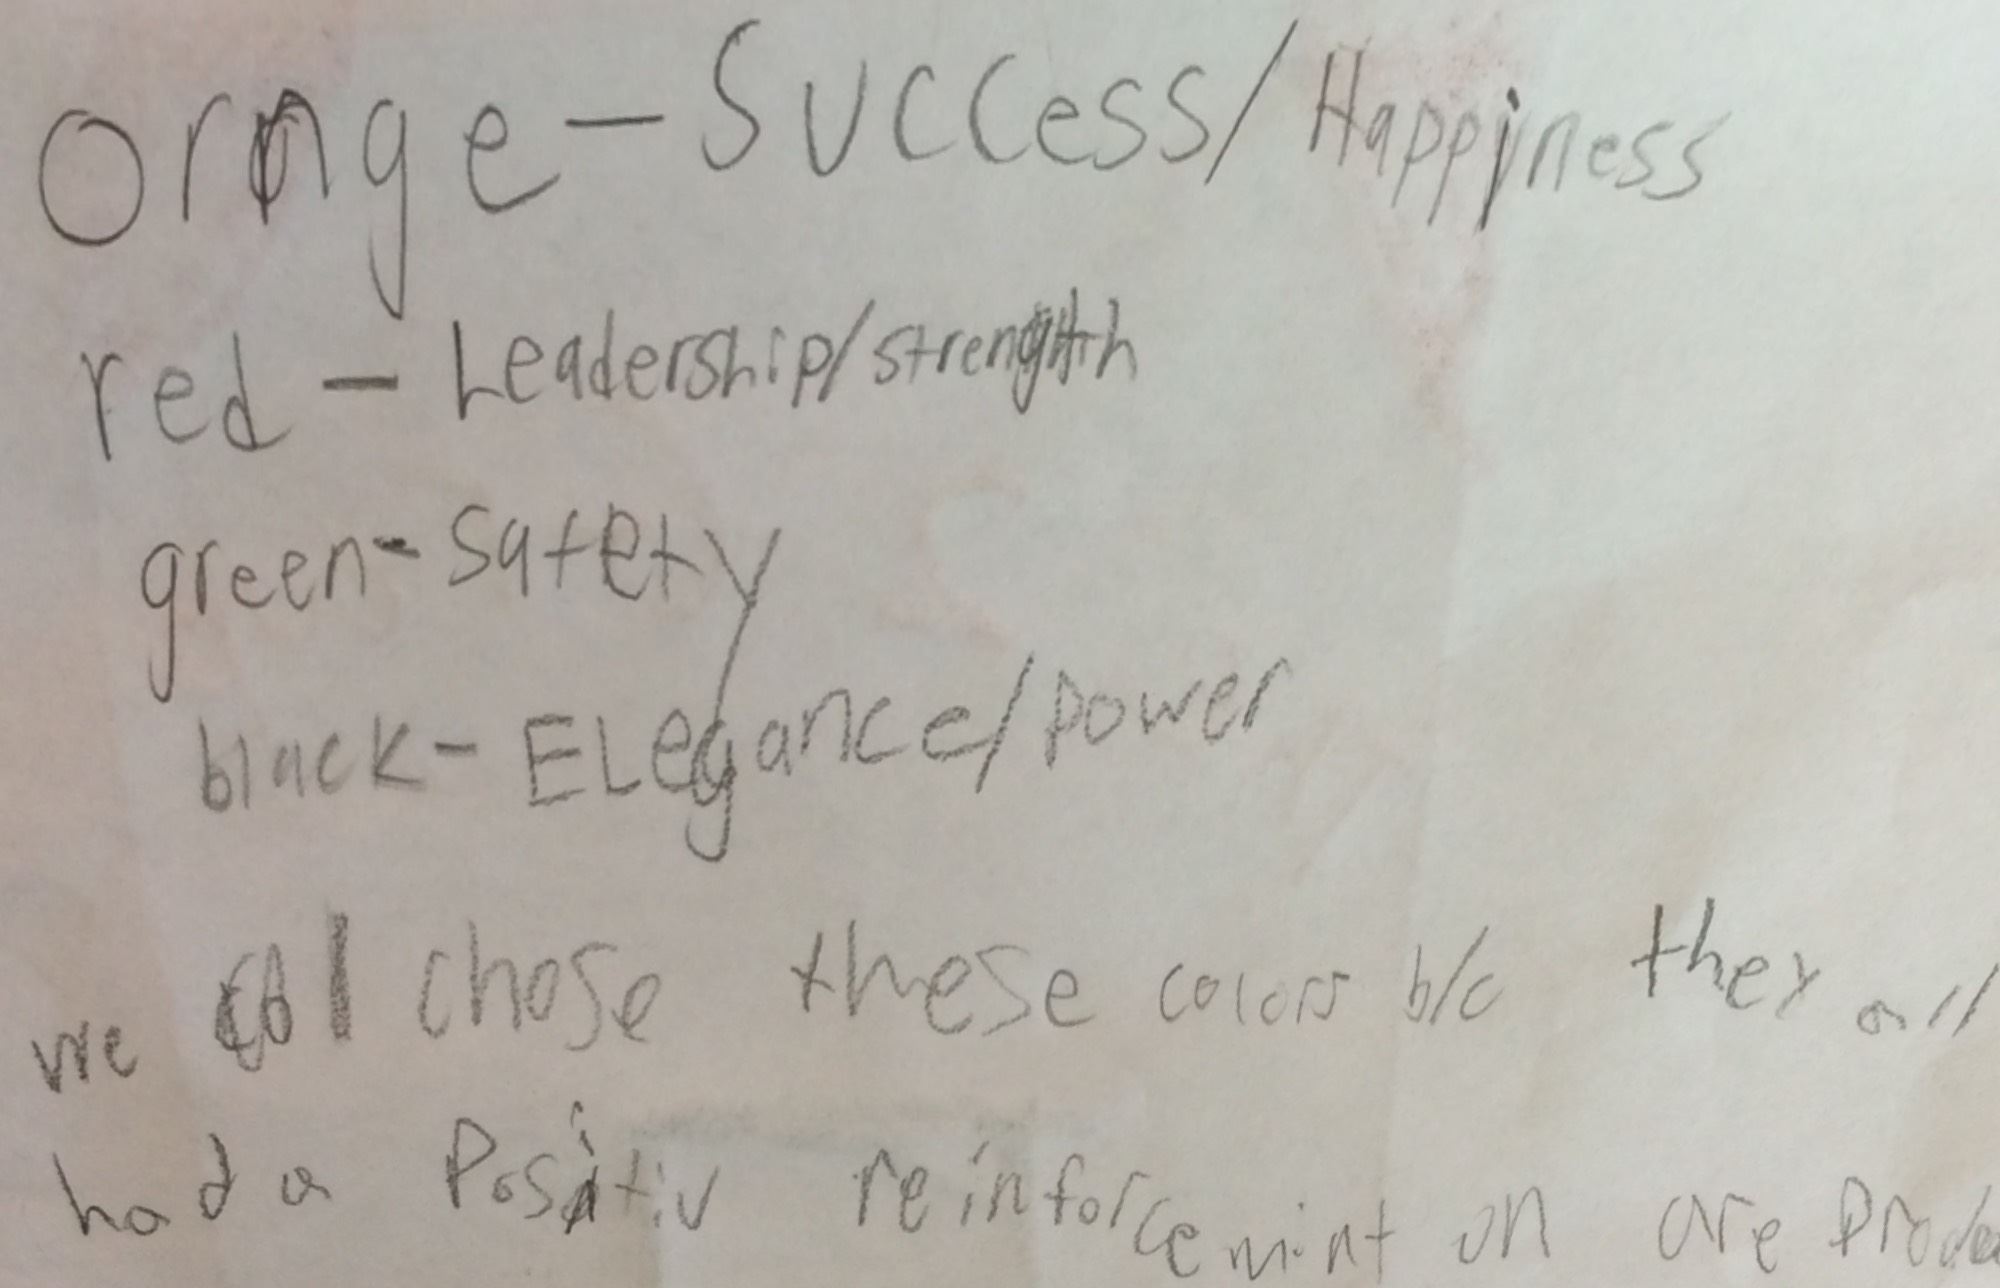 Ornge - Success/Happiness
red - Leadership/strength
green - Safety
black - ELegance/power
we all chose these colors b/c they all
had a Positiv reinforcemint on are